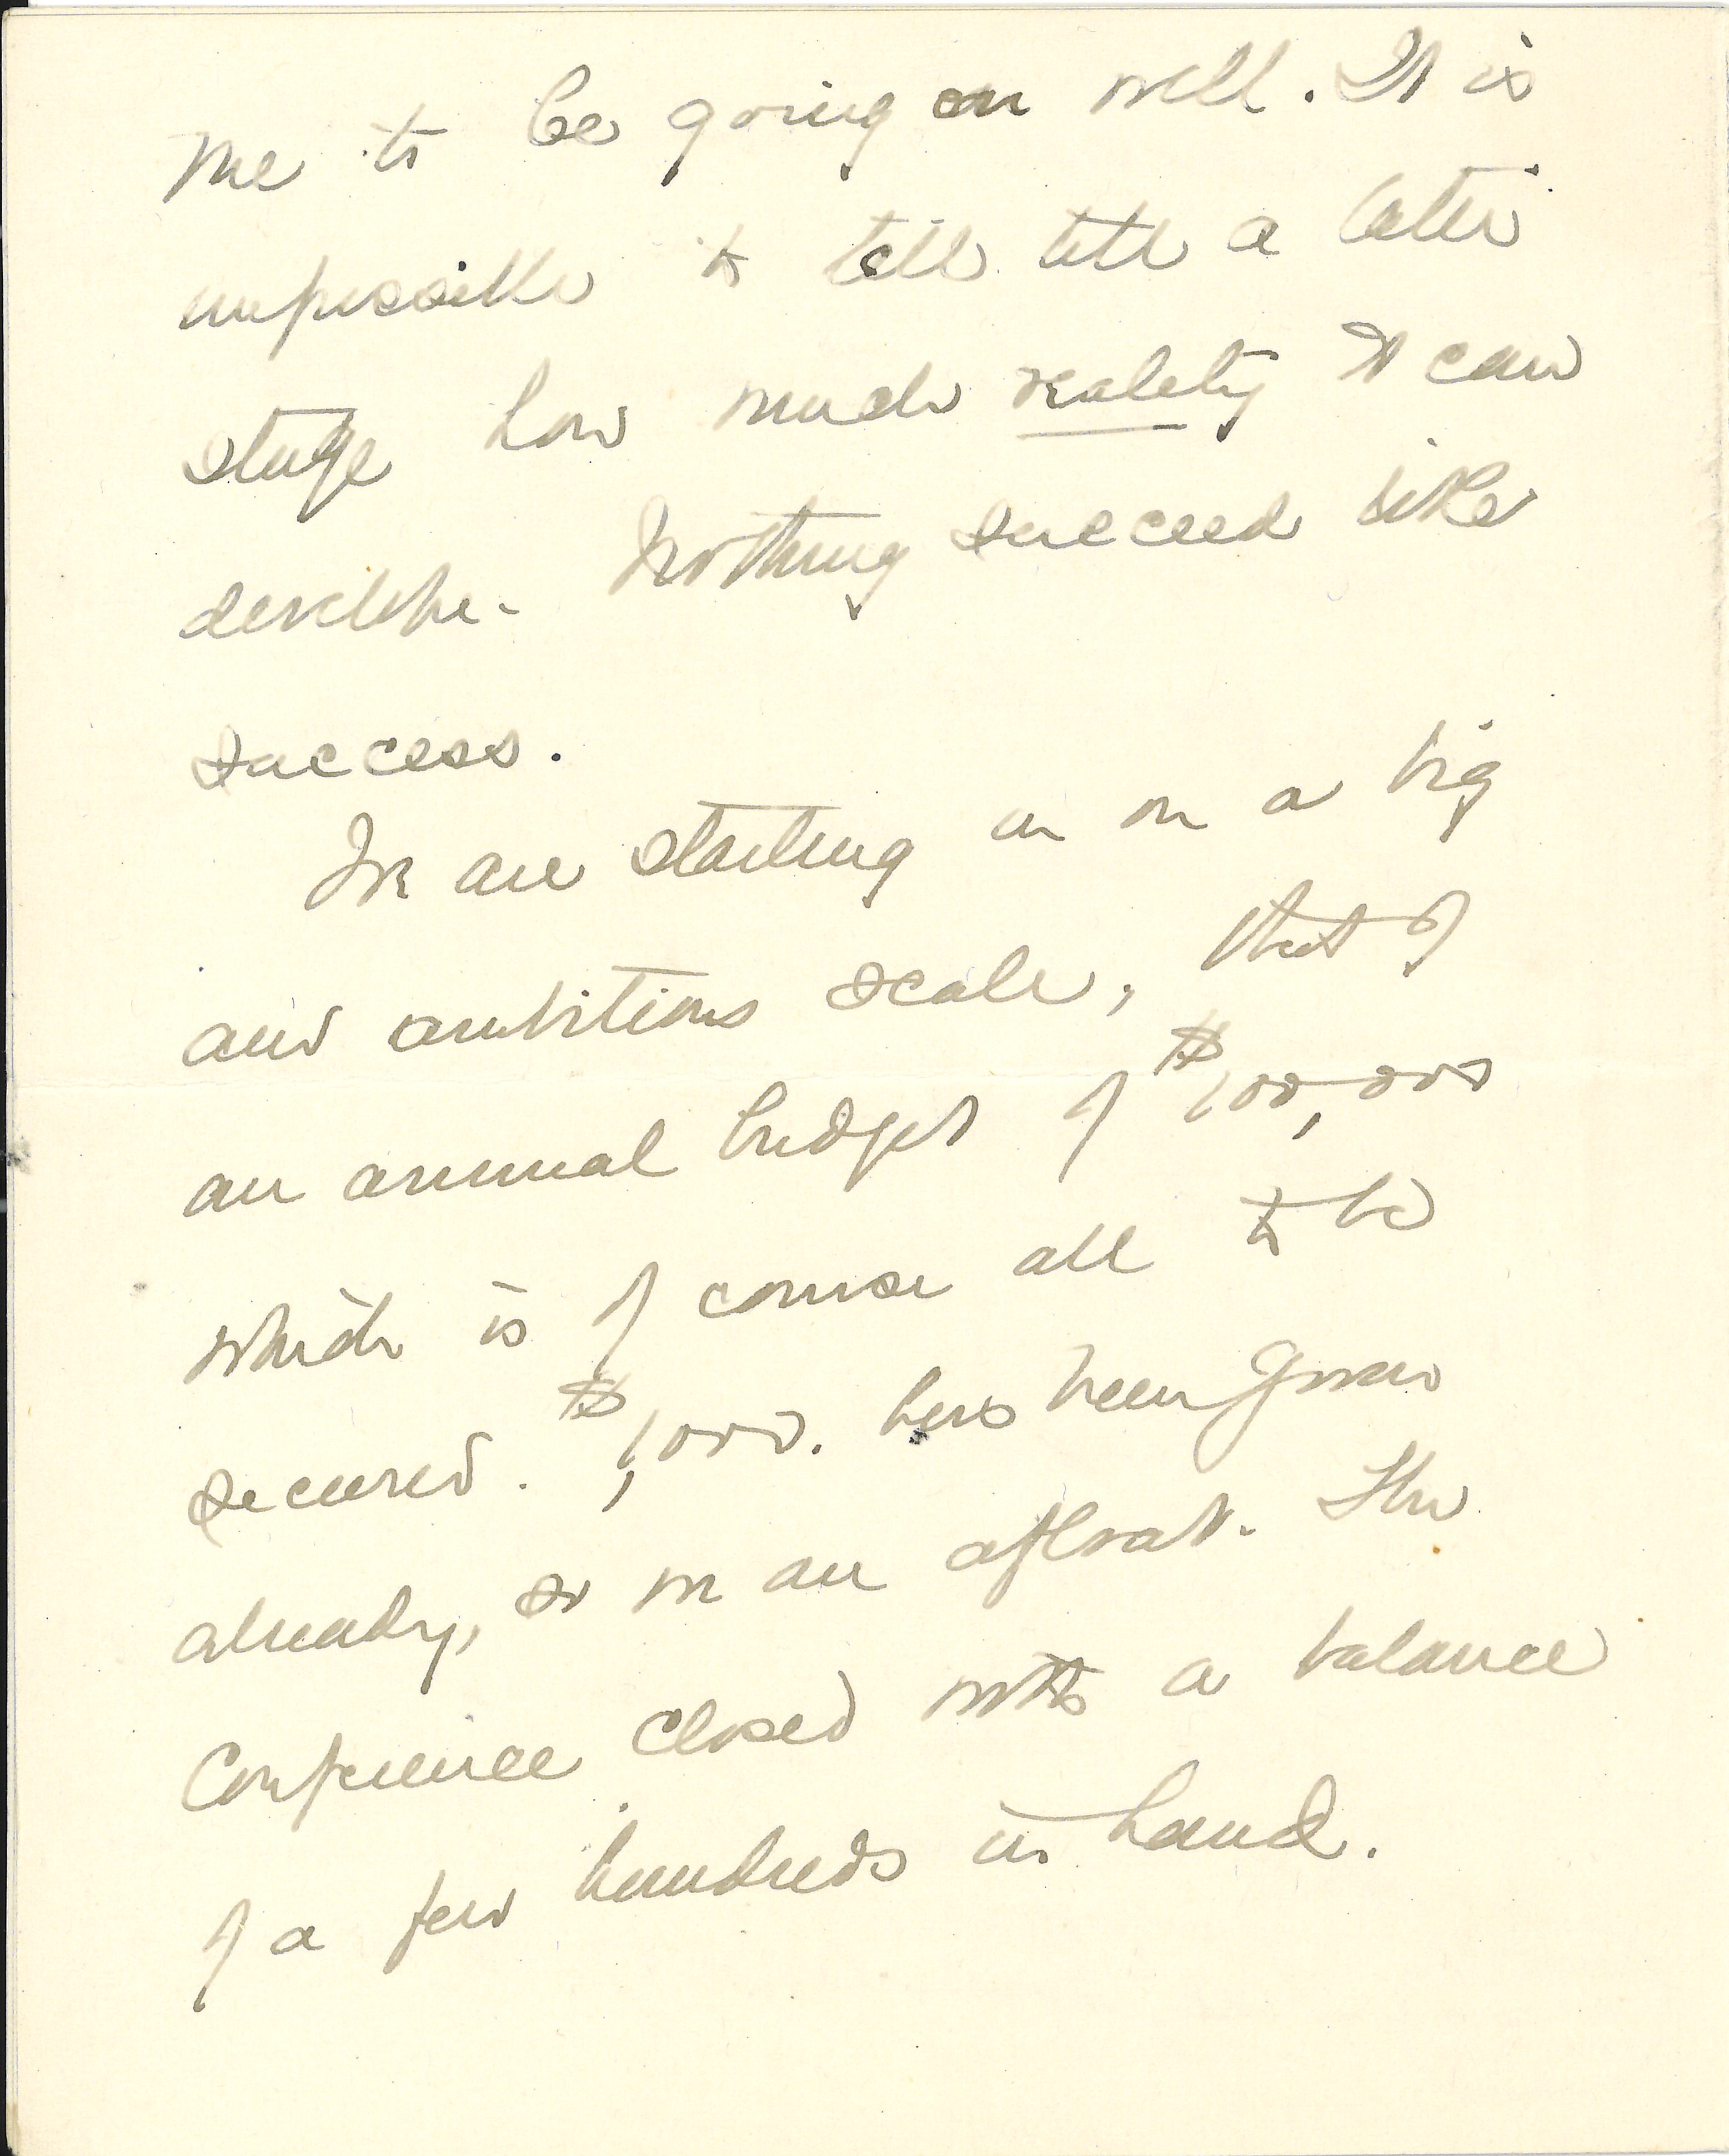 me to be going on well. It is
impossible to tell till a later
stage how much reality it can
develope. Nothing succeed like
success.
We are starting in on a big
and ambitious scale, that of
an annual budget of $100,000
which is of course all to be
secured. $1,000. has been given
already, so we are afloat. The
Conference closed with a balance
of a few hundreds in hand.